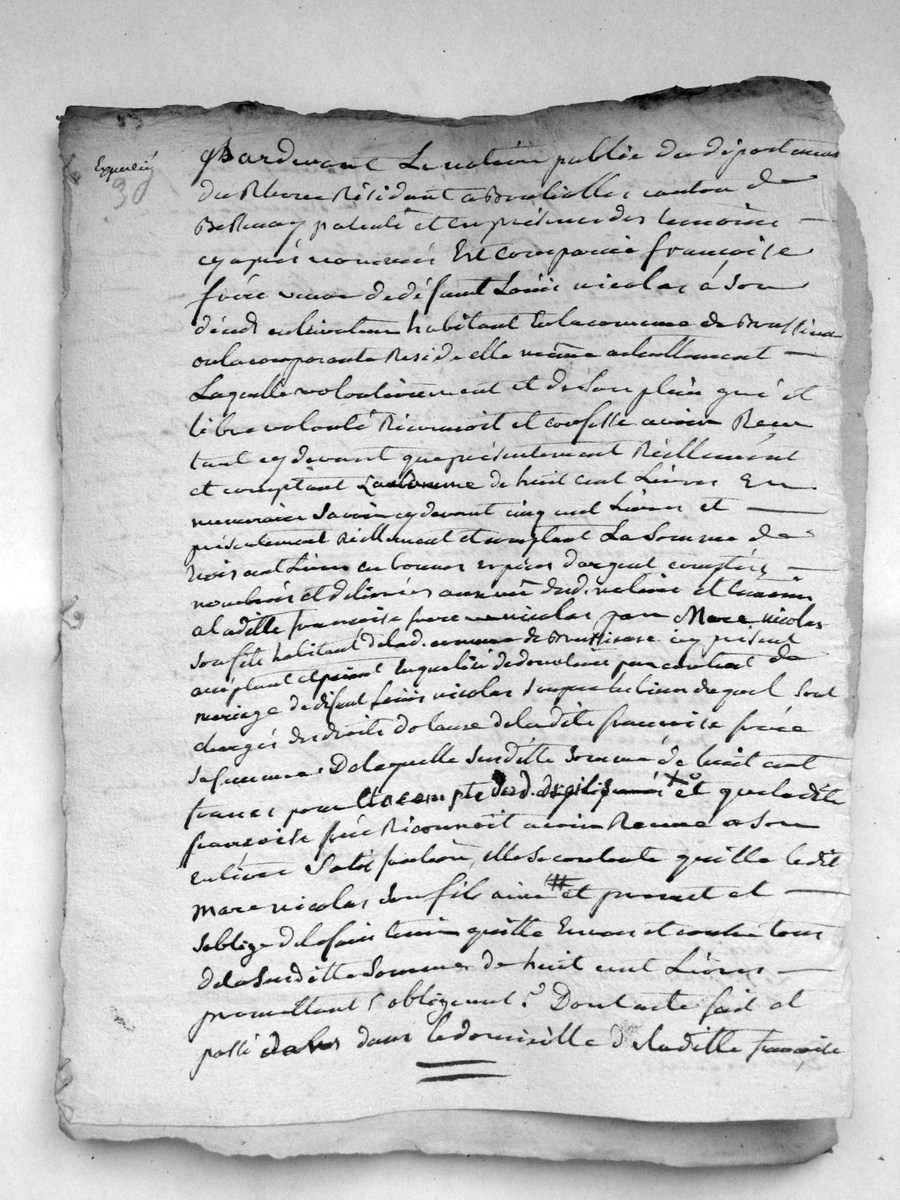 Expedié
Pardevant Le notaire public du département
du Rhone Résidant a Brulliolles canton de
Bessenay patenté et en présence des temoins
cy après nommés Est Comparue françoise
frère veuve de défunt Louis nicolas á son
décès cultivateur habitant en la commune de Brussieu
ou la comparante Reside elle même actuellement
Laquelle volontairement et de son plein gré et
libre volonté Reconnoit et confesse avoir Reçu
tant cy devant que présentement Réellement
et comptant La somme de huit cent Livres En
numeraire Savoir cy devant cinq cent Livres et
présentement Réellement et comptant La Somme de
trois cent Livres en bonnes espèces d'argent comptées
nombrées et délivrées au vû dud. notaire et temoins
a laditte françoise frere nicolas par Marc nicolas
son fils habitant de lad. commune de Brussieu icy présent
acceptant et En qualité de donataire par contrat de
mariage de défunt Louis nicolas son père les biens duquel sont
chargés des droits de ladite françoise frère
sa femme. De laquelle susditte Somme de huit cent
francs pour et que ladite
françoise frère Reconnoit avoir Reçue a son
entière Satisfaction, elle se contente quitte ledit
Marc nicolas son fils ainé et promet et
s'oblige de le faire tenir quitte Envers et contre tous
de la Susditte Somme de huit cent Livres
promettant &c obligeant &c Dont acte fait et
passé dans le domicille de laditte françoise